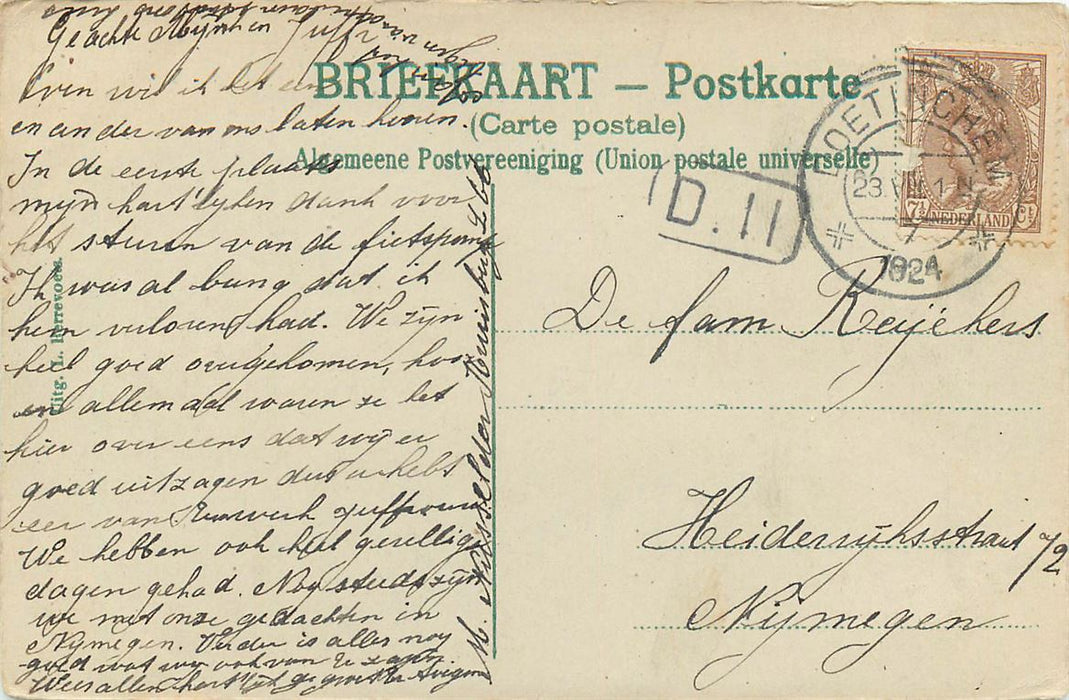 Geachte Mijnh en Juffr
Even wil ik U het een
en ander van ons laten hooren.
In de eerste plaats
mijn hart'lijken dank voor
het sturen van de fietspomp
Ik was al bang dat ik
hem verloren had. We zijn
heel goed overgekomen, hoor
en allemaal waren ze het
hier over eens dat wij er
goed uitzagen dus u hebt
eer van Uw werk juffrouw
We hebben ook heel gezellige
dagen gehad. Nog steeds zijn
we met onze gedachten in
Nijmegen. Verder is alles nog
goed wat wij ook van U
Wees allen hart'lijk gegroet
BRIEFKAART — Postkarte
(Carte postale)
Algemeene Postvereeniging (Union postale universelle)
D.II
DOETINCHEM
23.VIII 1-N
1924
7½ NEDERLAND Ct
De fam Reijchers
Heiderijksstraat 72
Nijmegen